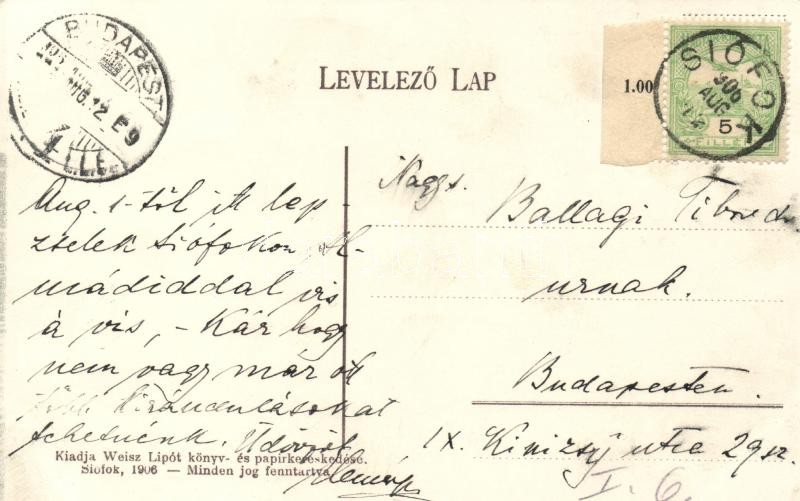 LEVELEZŐ LAP
BUDAPEST
E9
1.00
SIÓFOK
906
AUG
5
FILLÉR
Aug. 1-től itt lep-
zselek Siófokon Al-
mádiddal vis
á vis, - Kár hogy
nem vagy már itt
több kirándulásokat
tehetnénk. Üdvözöl
Nagys.
Ballagi Tibor
urnak.
Budapesten.
IX. Kinizsy utca 29 sz.
I. 6.
Kiadja Weisz Lipót könyv- és papirkereskedése.
Siófok, 1906 — Minden jog fenntartva